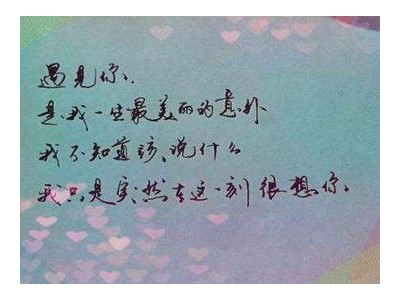 遇见你、
是我一生最美丽的意外
我不知道该、说什么
我只是突然在这一刻很想你、